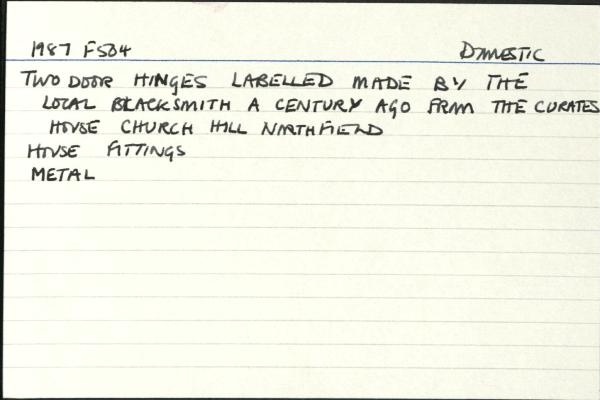 1987 F504 DOMESTIC
TWO DOOR HINGES LABELLED MADE BY THE
LOCAL BLACKSMITH A CENTURY AGO FROM THE CURATES
HOUSE CHURCH HILL NORTHFIELD
HOUSE FITTINGS
METAL